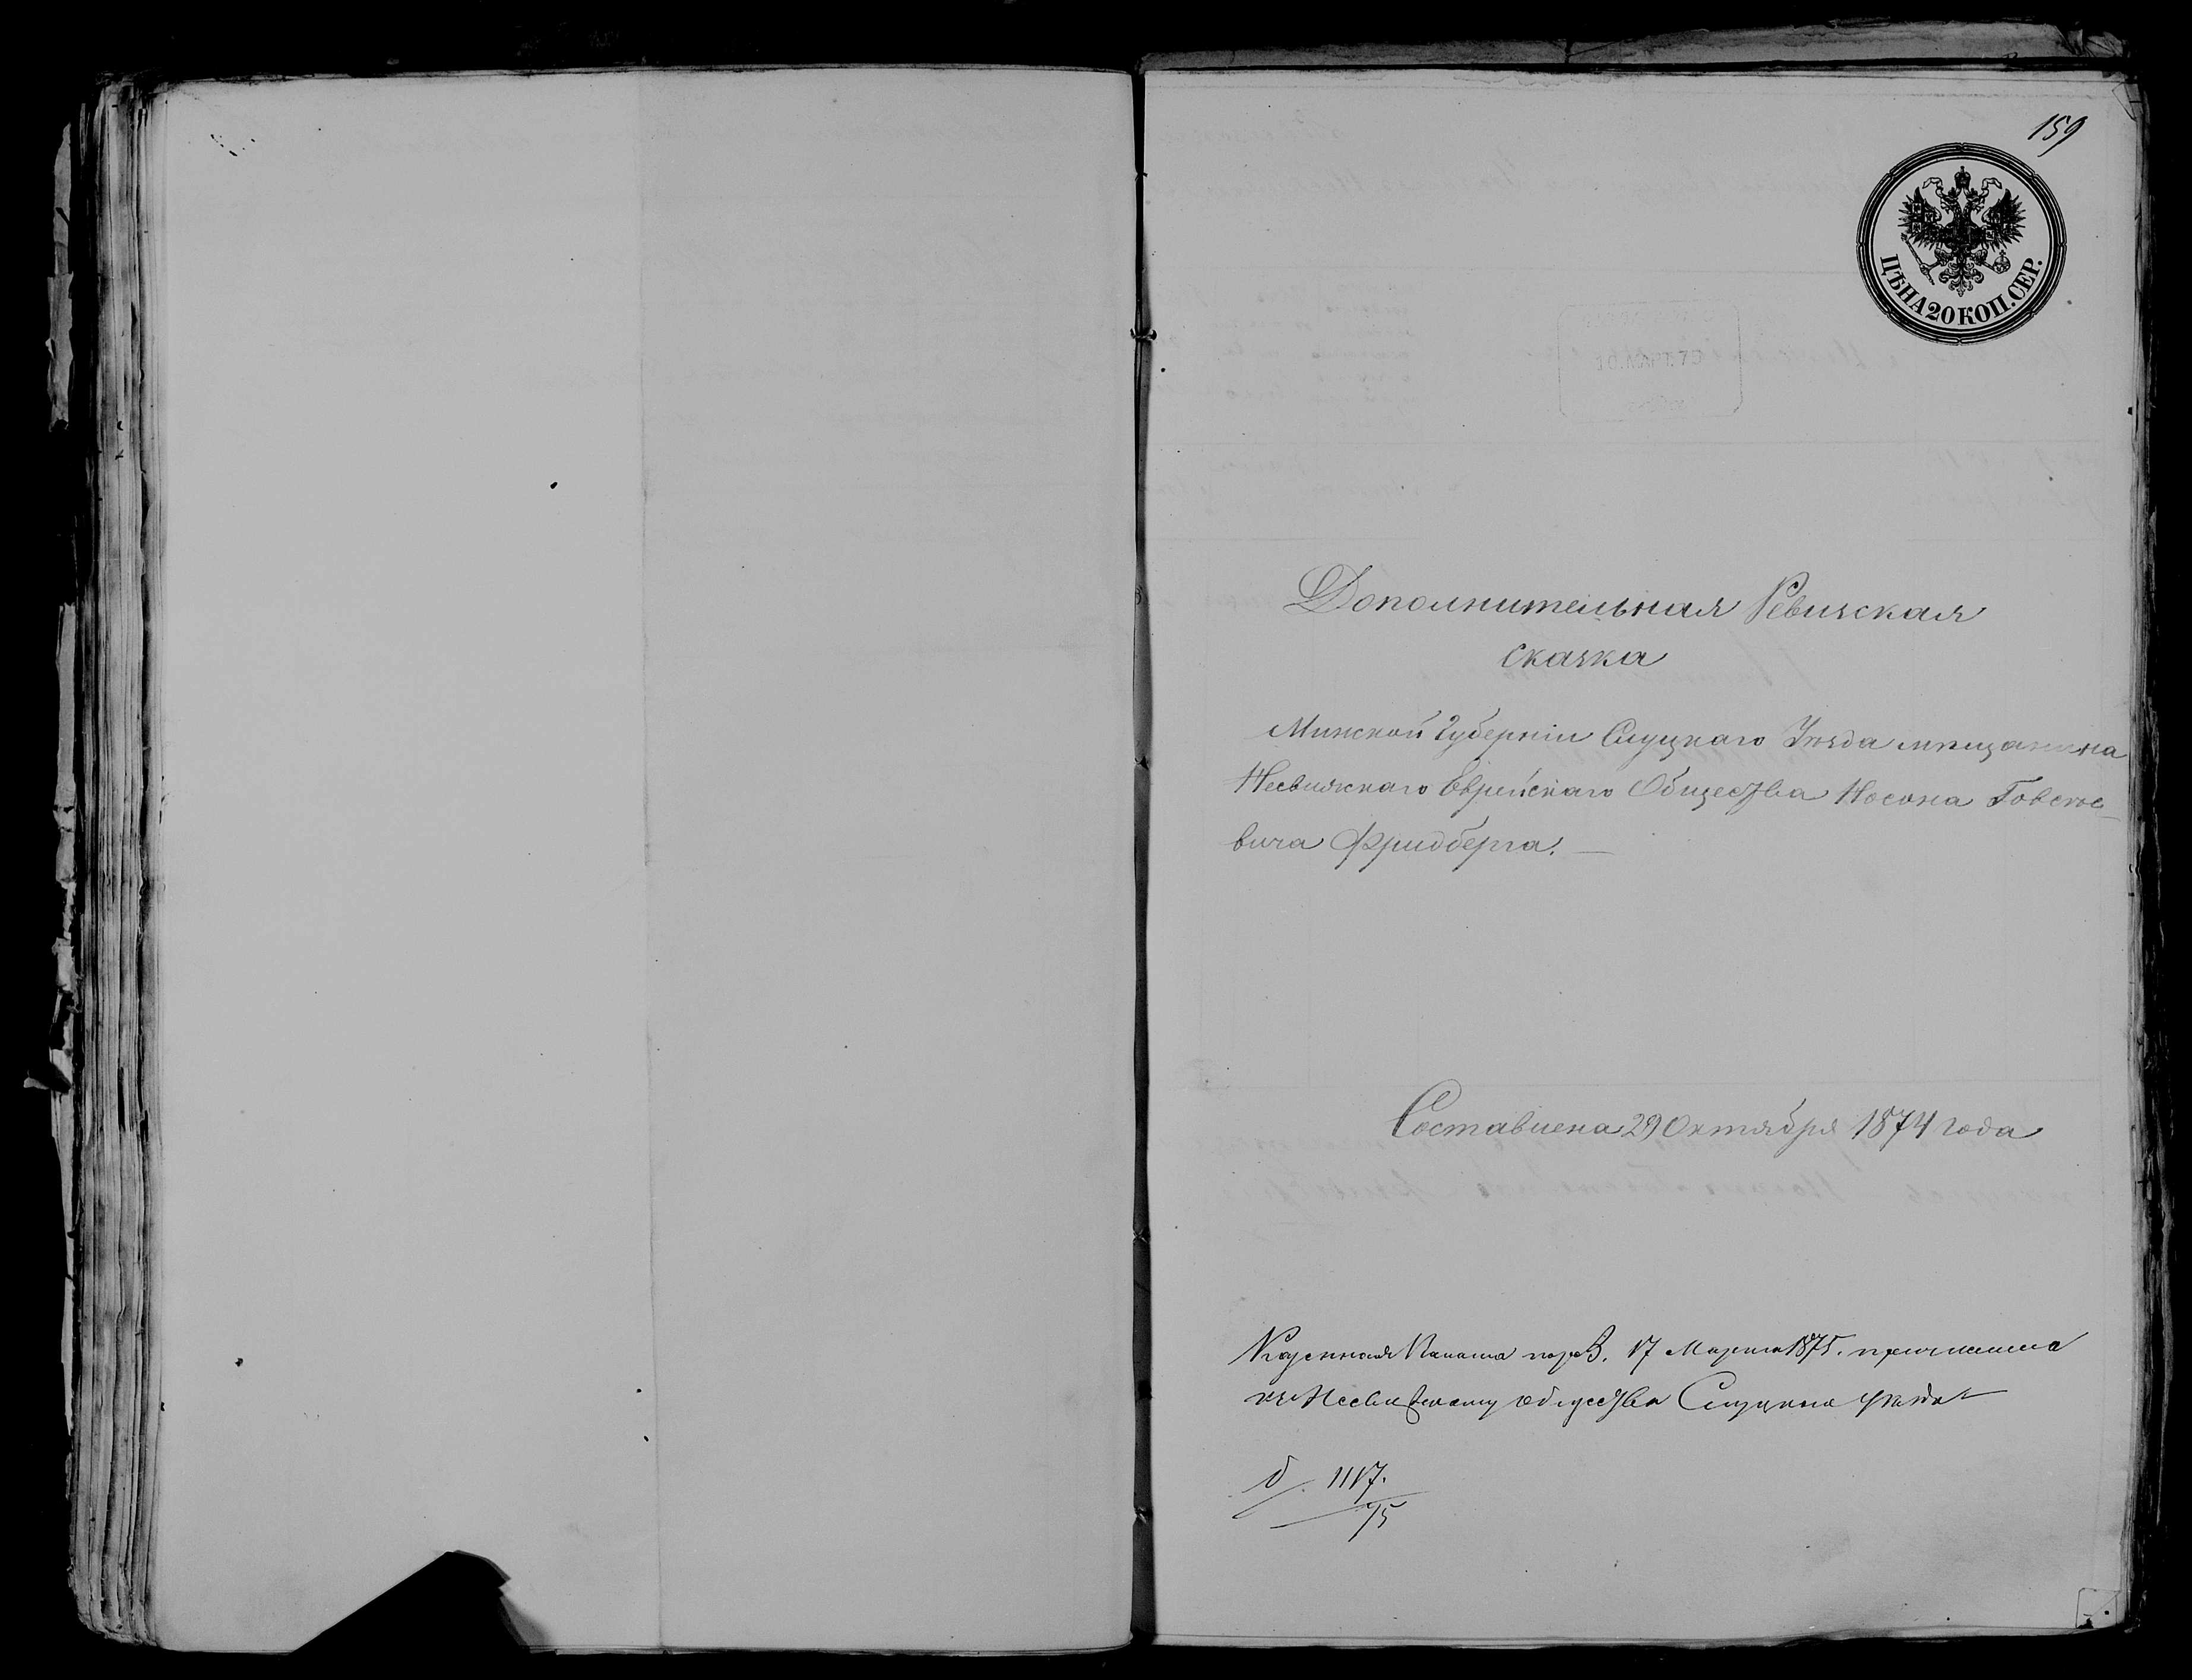 159
ЦѢНА 20 КОП. СЕР.
10 МАРТ. 75
Дополнительная Ревизская
сказка
Минской Губерніи Слуцкаго Уѣзда мѣщанина
Несвижскаго Еврейскаго Общества Носона Говсѣе-
вича Фридберга. —
Составлена 29 Октября 1874 года
Казенная Палата 17 Марта 1875. причислила
къ Несвижскому обществу Слуцкаго уѣзда
1117.
75